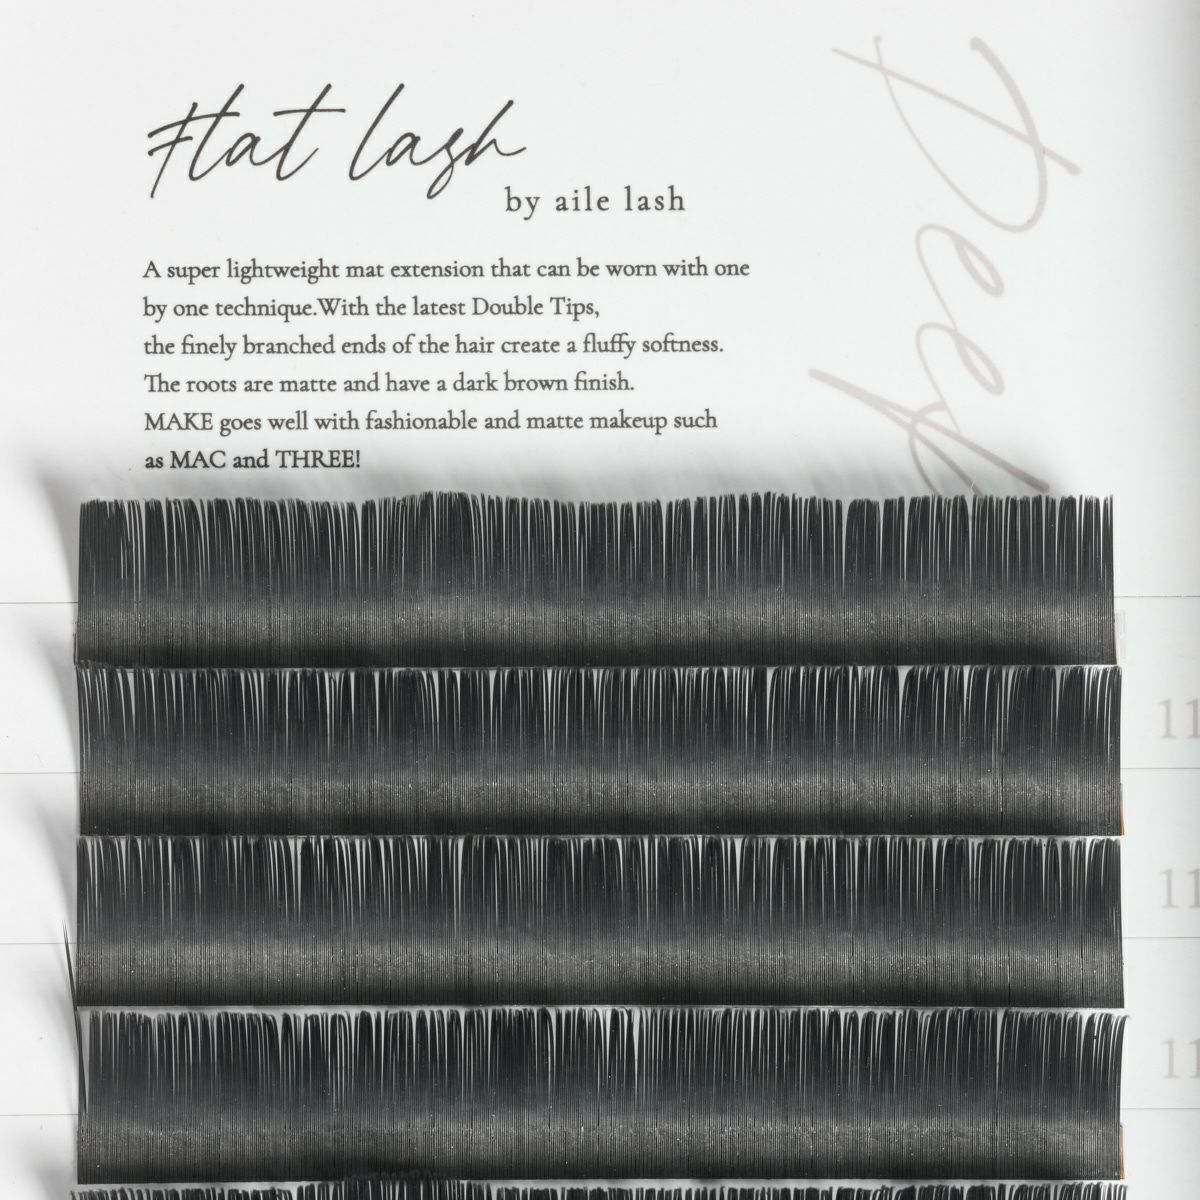 Flat lash
by aile lash
A super lightweight mat extension that can be worn with one
by one technique.With the latest Double Tips,
the finely branched ends of the hair create a fluffy softness.
The roots are matte and have a dark brown finish.
MAKE goes well with fashionable and matte makeup such
as MAC and THREE!
11
11
11